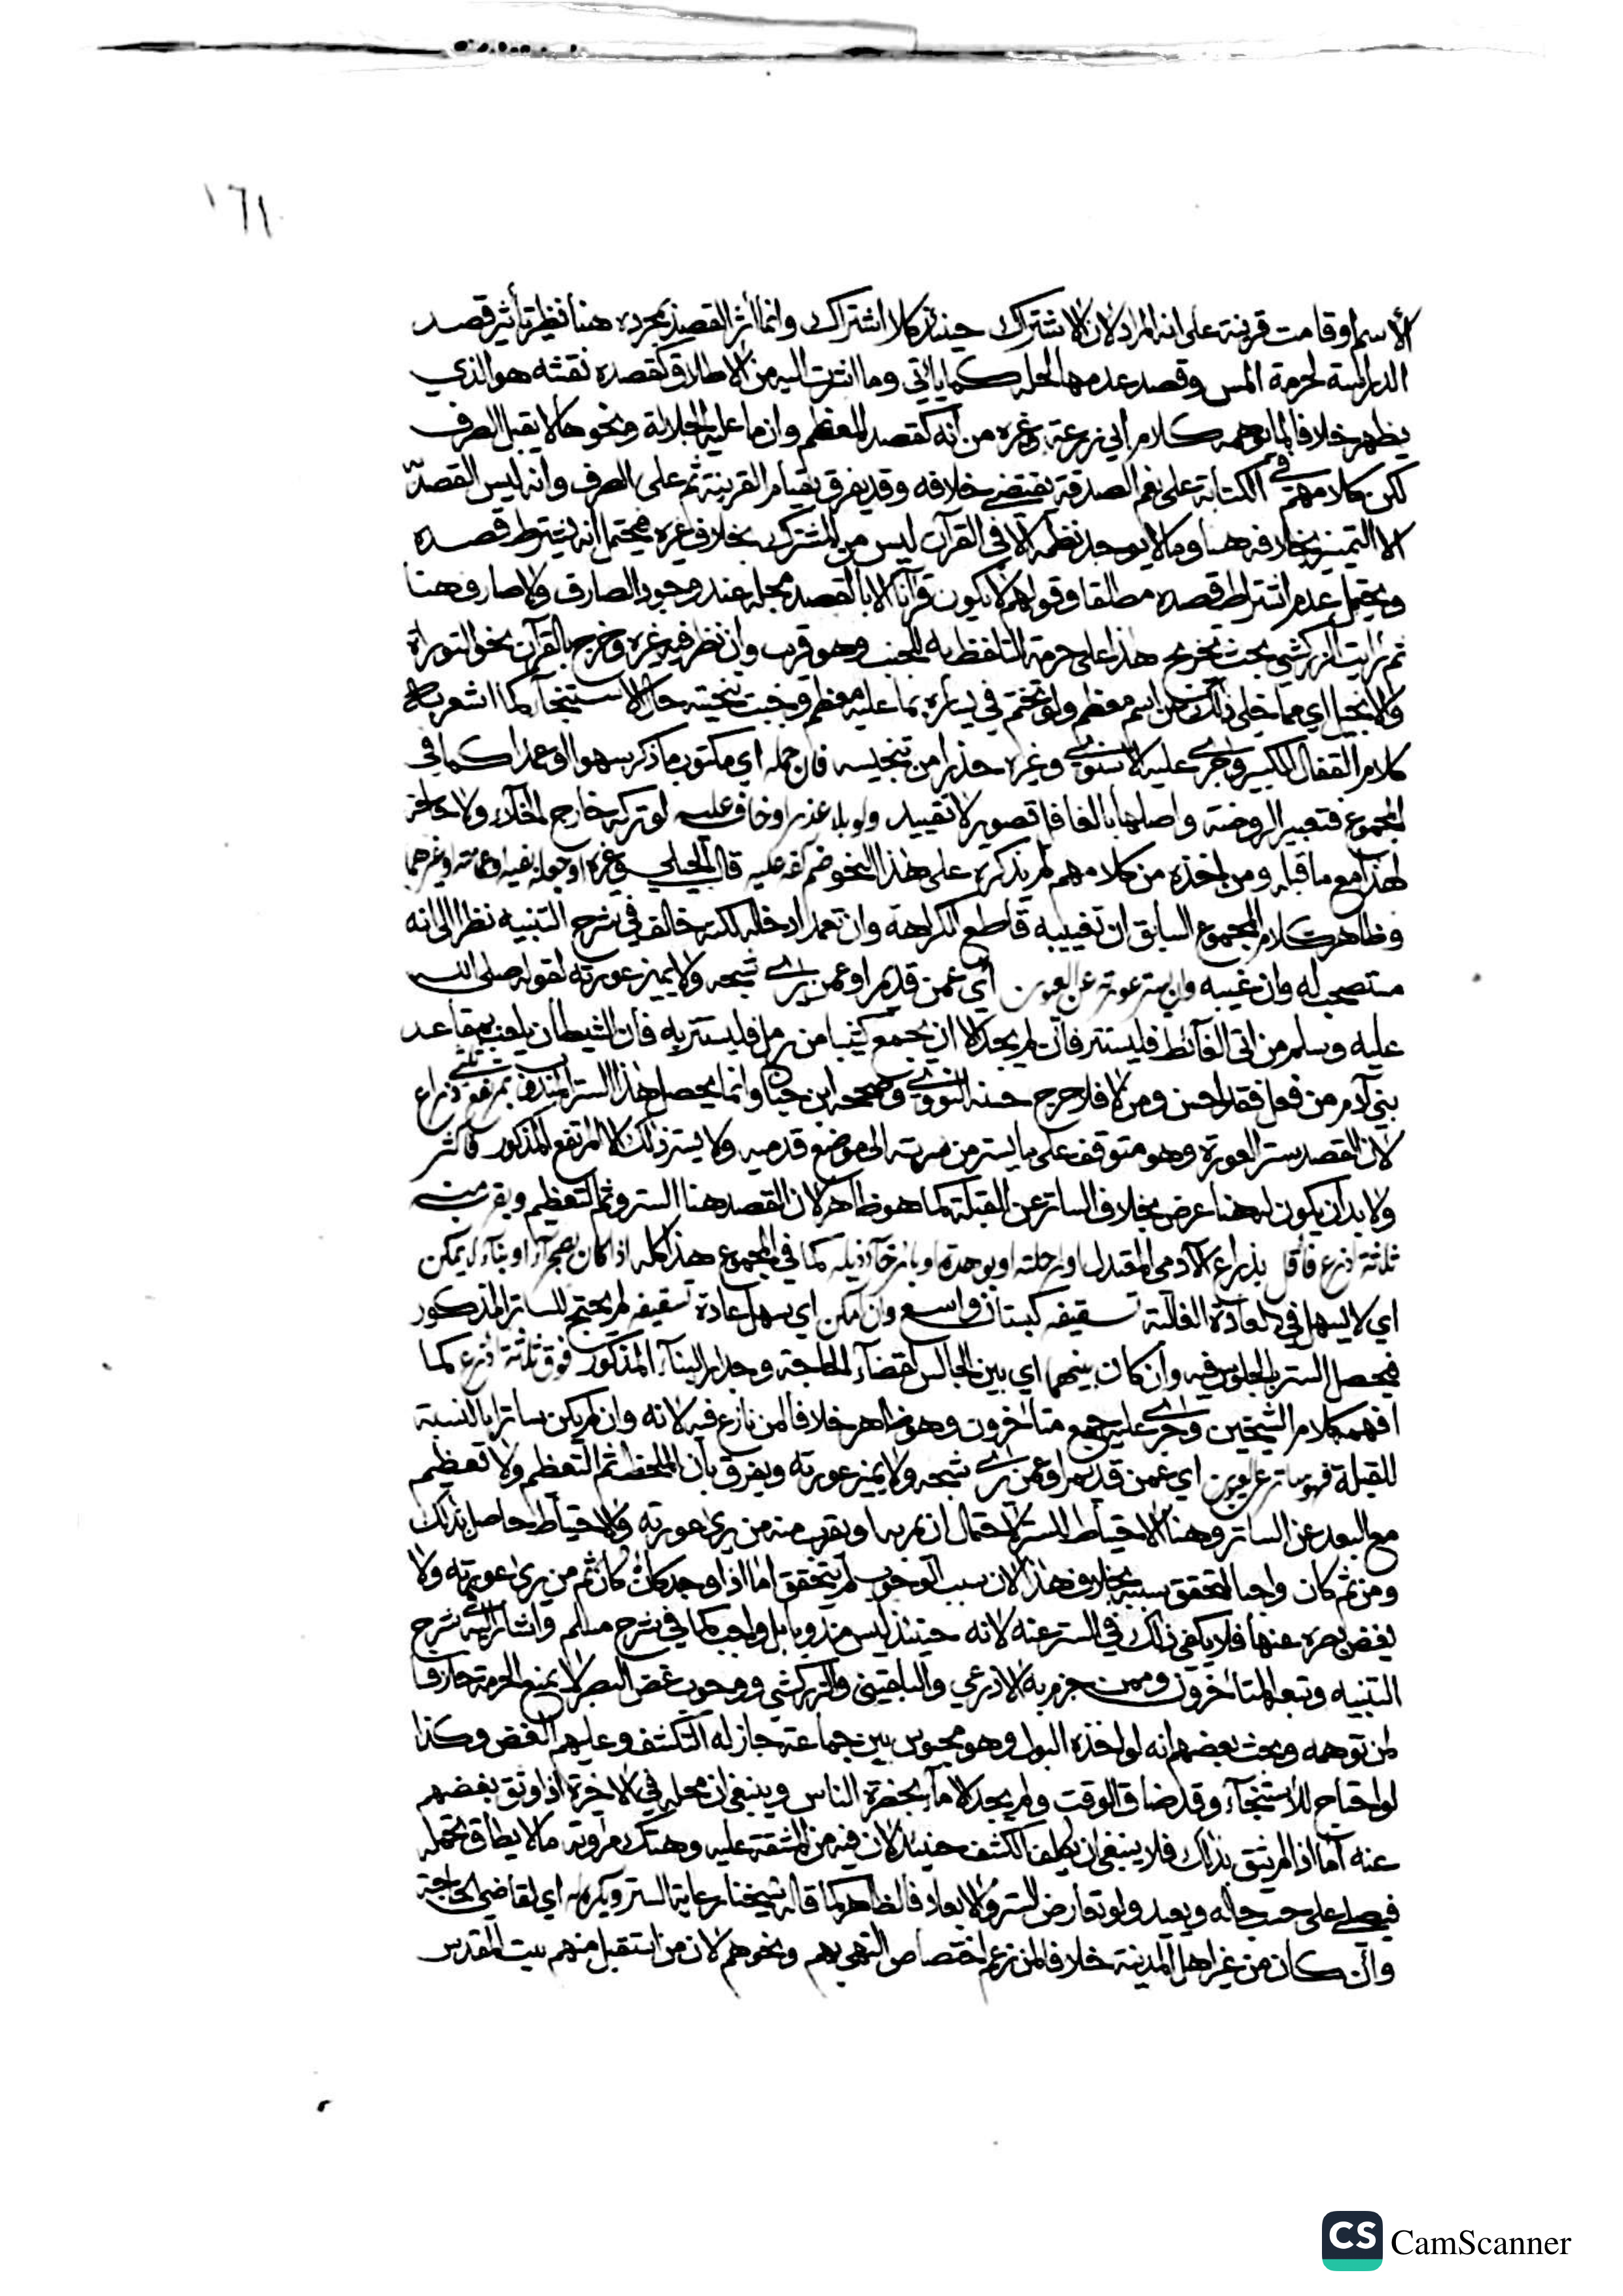 ١٦١
الاسم او قامت قرينة على انه المراد لان الاشتراك حينئذ كلا اشتراك وانما اثر القصد بمجرده هنا نظير تأثير قصد
الدراسة لحرمة المس وقصد عدمها لحله كما ياتي وما اشرت اليه من الاطلاق كقصده نقشه هو الذي
يظهر خلافا لما يوهمه كلام ابي زرعة وغيره من انه كقصد المعظم وان ما عليه الجلالة ونحوها لا يقبل الصرف
لكن كلامهم في الكتابة على نعم الصدقة يقتضي خلافه وقد يفرق بقيام القرينة ثم على الصرف وانه ليس القصد ثم
الا التمييز بخلافه هنا وما لا يوجد نظمه الا في القرآن ليس من المشترك بخلاف غيره فيحتمل انه يشترط قصده
ويحتمل عدم اشتراط قصده مطلقا وقولهم لا يكون قرآنا الا بالقصد محله عند وجود الصارف ولا صارف هنا
ثم رأيت الزركشي بحث تخريج هذا على حرمة التلفظ به للجنب وهو قريب وان نظر فيه غيره وخرج بالقرآن نحو التوراة
والانجيل اي مما خلي ذلك عن اسم معظم ولو تختم في يساره بما عليه معظم وجبت تنحيته حال الاستنجاء كما اشعر به
كلام القفال الكبير وجرى عليه الاسنوي وغيره حذرا من تنجيسه فان حمله اي مكتوب ما ذكر سهوا او عمدا كما في
المجموع فتعبير الروضة واصلها بالغافل تصوير لا تقييد ولو بلا عذر او خاف عليه لو تركه خارج الخلاء ولا
لهذا مع ما قبله ومن اخذه من كلامهم لم يذكره على هذا النحو ضم كفه عليه قال الجيلي وغيره او جعله بفيه او عمامته او غيرهما
وظاهر كلام المجموع السابق ان تغييبه قاطع للكراهة وان تعمد ادخاله لكنه خالف في شرح التنبيه نظرا الى انه
مستصحب له وان غيبه وان يستر عورته عن العيون اي عمن قدمر او عمن يرى شبحه ولا يميز عورته لقوله صلى الله
عليه وسلم من اتى الغائط فليستتر فان لم يجد الا ان يجمع كثيبا من رمل فليستتر به فان الشيطان يلعب بمقاعد
بني آدم من فعل فقد احسن ومن لا فلا حرج حسنه النووي وصححه ابن حبان وانما يحصل هذا الستر المندوب بمرتفع ثلثي ذراع
لان القصد ستر العورة وهو متوقف على ما يستر من سرته الى موضع قدميه ولا يستر ذلك الا المرتفع المذكور فاكثر
ولا بد ان يكون له هنا عرض بخلاف الساتر عن القبلة كما هو ظاهر لان القصد هنا الستر وثم التعظيم ويقرب منه
ثلاثة اذرع فاقل بذراع الآدمي المعتدل او راحلته او بوهدة او بارخاء ذيله كما في المجموع هذا كله اذا كان بصحراء او بناء لم يمكن
اي لا يسهل في العادة الغالبة تسقيفه كبستان واسع وان امكن اي سهل عادة تسقيفه لم يحتج للساتر المذكور
فيحصل الستر بالجلوس فيه وان كان بينهما اي بين الجالس لقضاء الحاجة وجدار البناء المذكور فوق ثلاثة اذرع كما
افهمه كلام الشيخين وجرى عليه جمع متأخرون وهو ظاهر خلافا لمن نازع فيه لانه وان لم يكن ساترا بالنسبة
للقبلة فهو ساتر عن العيون اي عمن قدمر او عمن يرى شبحه ولا يميز عورته ويفرق بان الملحظ ثم التعظيم ولا تعظيم
مع البعد عن الساتر وهنا الاحتياط للستر لاحتمال ان يمر به او يقرب منه من يرى عورته والاحتياط حاصل بذلك
ومن ثم كان واجبا لتحقق سببه بخلاف هذا لان سبب الوجوب لم يتحقق اما اذا وجد كان كان ثم من يرى عورته ولا
يغض بصره عنها فلا يكفي ذلك في الستر عنه لانه حينئذ ليس مندوبا بل واجب كما في شرح مسلم واشار اليه في شرح
التنبيه وتبعه المتأخرون وممن جزم به الاذرعي والبلقيني والزركشي ووجوب غض البصر لا يمنع الحرمة خلافا
لمن توهمه وبحث بعضهم انه لو اخذه البول وهو محبوس بين جماعة جاز له التكشف وعليهم الغض وكذا
لو احتاج للاستنجاء وقد ضاق الوقت ولم يجد الا ماء بحضرة الناس وينبغي ان محله في الاخيرة اذا وثق بغضهم
عنه اما اذا لم يثق بذلك فلا ينبغي ان يكلف الكشف حينئذ لان فيه من المشقة عليه وهتك مروءته ما لا يطاق تحمله
فيصلي على حسب حاله ويعيد ولو تعارض الستر والابعاد فالظاهر كما قاله شيخنا رعاية الستر ويكره اي لقاضي الحاجة
وان كان من غير اهل المدينة خلافا لمن زعم اختصاص النهي بهم ونحوهم لان من استقبل منهم بيت المقدس
CS CamScanner